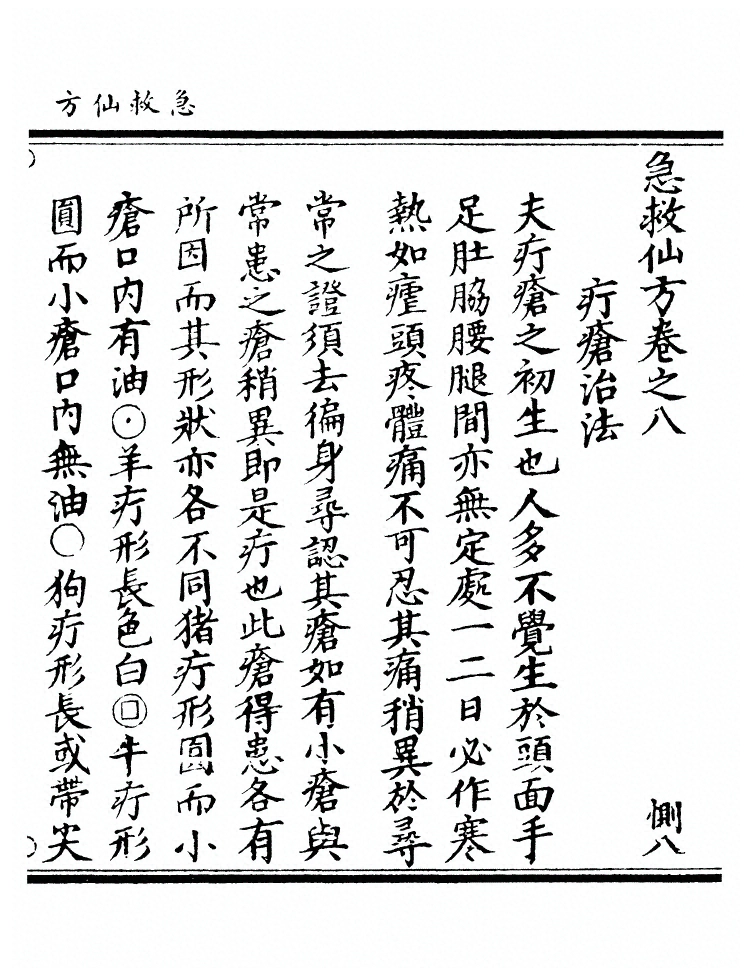 急救仙方
急救仙方卷之八 惻八
疔瘡治法
夫疔瘡之初生也人多不覺生於頭面手
足肚脇腰腿間亦無定處一二日必作寒
熱如瘧頭疼體痛不可忍其痛稍異於尋
常之證須去徧身尋認其瘡如有小瘡與
常患之瘡稍異即是疔也此瘡得患各有
所因而其形狀亦各不同猪疔形圓而小
瘡口內有油⊙羊疔形長色白回牛疔形
圓而小瘡口內無油○狗疔形長或帶尖